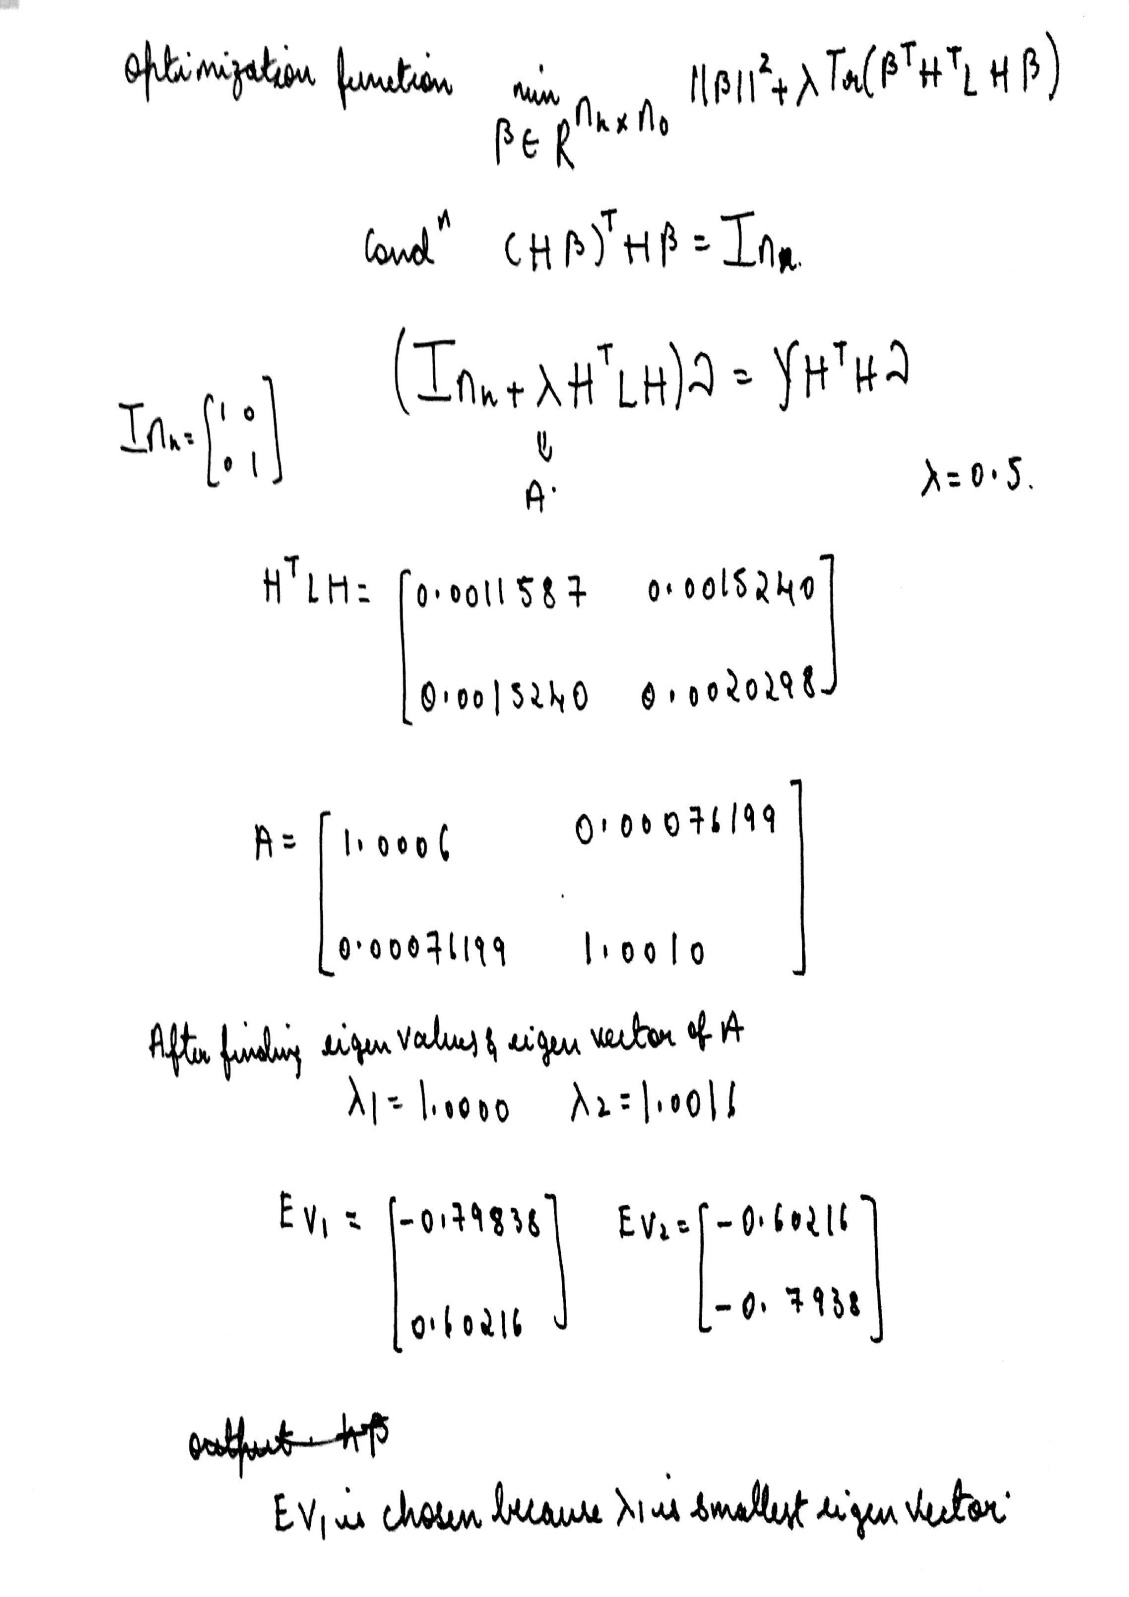 optimization function min β ∈ R^{n_h × n_o} ||β||² + λ Tr(β^T H^T L H β)
Condⁿ (Hβ)^T Hβ = I n
(I n_h + λ H^T L H) v = γ H^T H v
I n_h = [1 0
0 1]
⇓
A.
λ = 0.5.
H^T L H = [0.0011587 0.0015240
0.0015240 0.0020298]
A = [1.0006 0.00076199
0.00076199 1.0010]
After finding eigen values & eigen vector of A
λ1 = 1.0000 λ2 = 1.0016
EV₁ = [-0.79838 EV₂ = [-0.60216
0.60216] -0.7938]
output hβ
EV₁ is chosen because λ1 is smallest eigen vector.